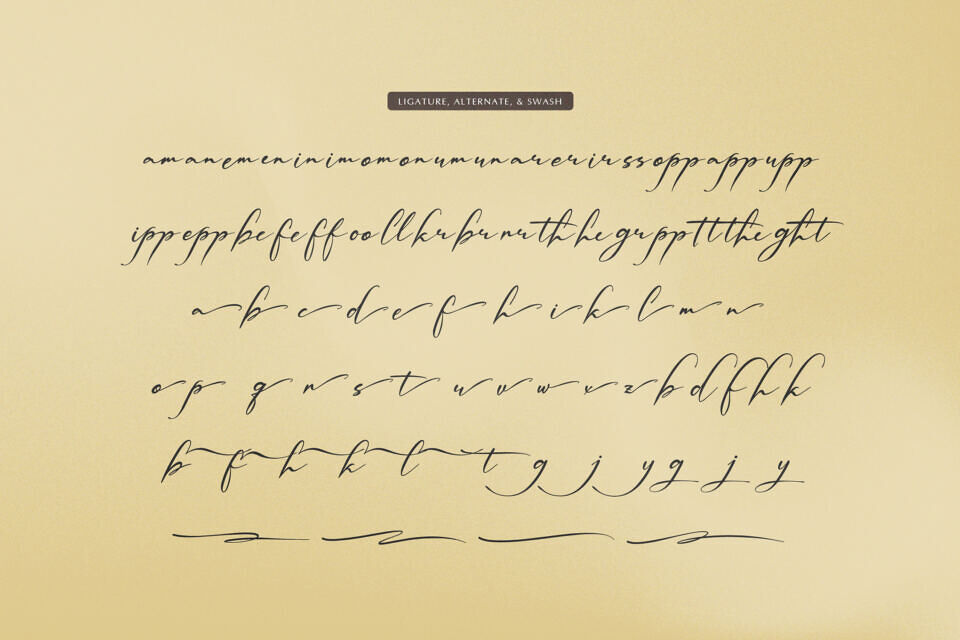 LIGATURE, ALTERNATE, & SWASH
amanemeninimomonumunarerirssoppappupp
ippeppbefefffoollkrbrnrththegrppttttheght
a b c d e f h i k l m n
o p q r s t u v w x z b d f h k
b f h k l t g j y g j y